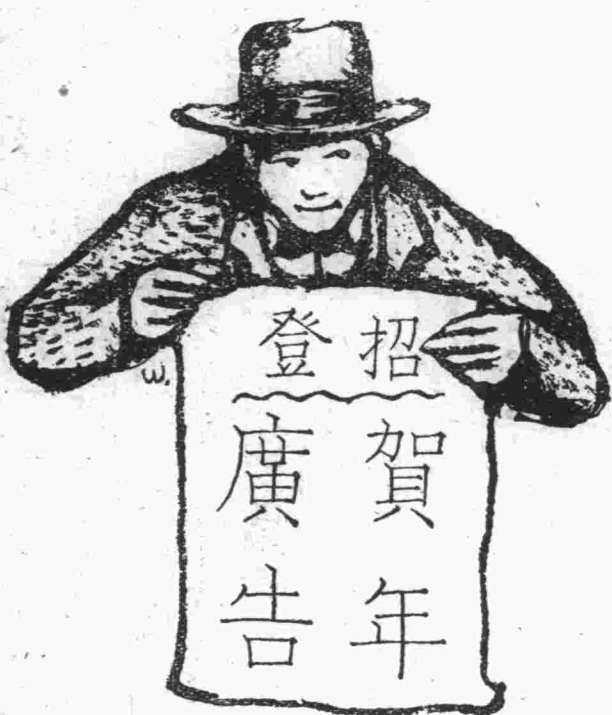 招登
賀年
廣告
W.